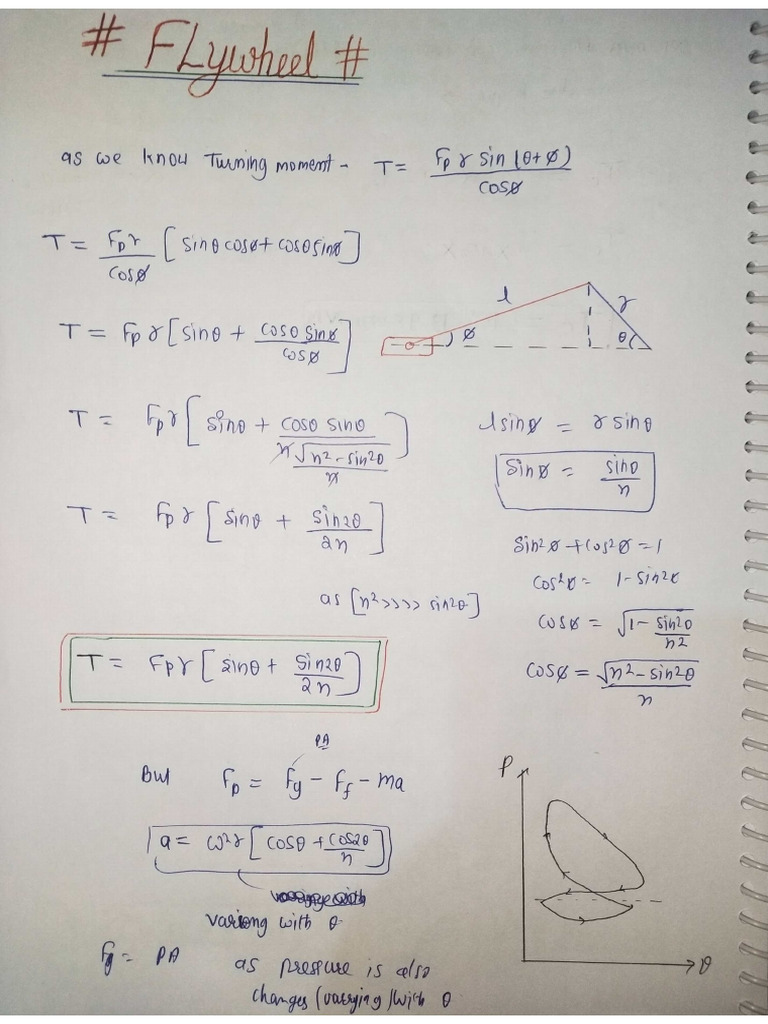 # FLywheel #
as we know Turning moment - T = Fp r sin(θ+ø) / cosø
T = Fp r / cosø [sinθ cosø + cosθ sinø]
T = Fp r [sinθ + cosθ sinø / cosø]
l
r
ø
θ
T = Fp r [sinθ + cosθ sinθ / n √n²-sin²θ / n]
l sinø = r sinθ
sinø = sinθ / n
T = Fp r [sinθ + sin2θ / 2n]
sin²ø + cos²ø = 1
cos²ø = 1 - sin²ø
as [n² >>>> sin²θ]
cosø = √1 - sin²θ / n²
T = Fp r [sinθ + sin2θ / 2n]
cosø = √n² - sin²θ / n
PA
But Fp = Fg - Ff - ma
P
a = ω²r [cosθ + cos2θ / n]
varing with θ
Fg = PA as pressure is also
changes (varrying) with θ
θ